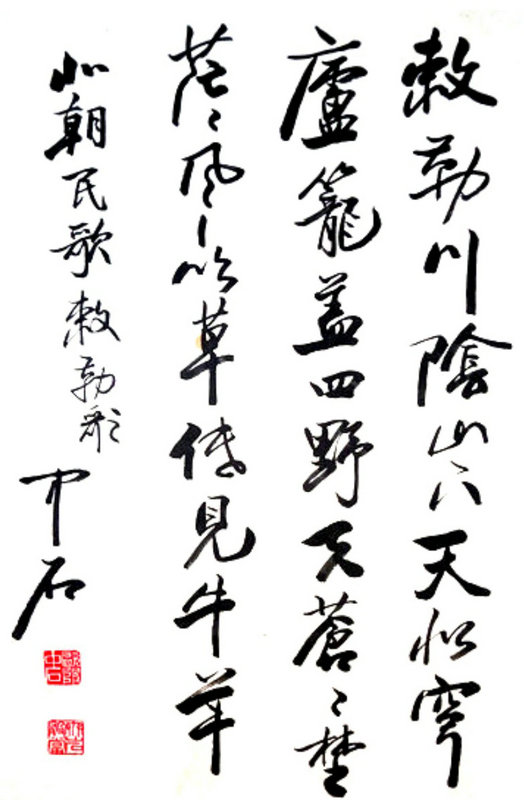 敕勒川陰山下天似穹
廬籠蓋四野天蒼〻埜
茫〻風吹草低見牛羊
北朝民歌敕勒歌
中石